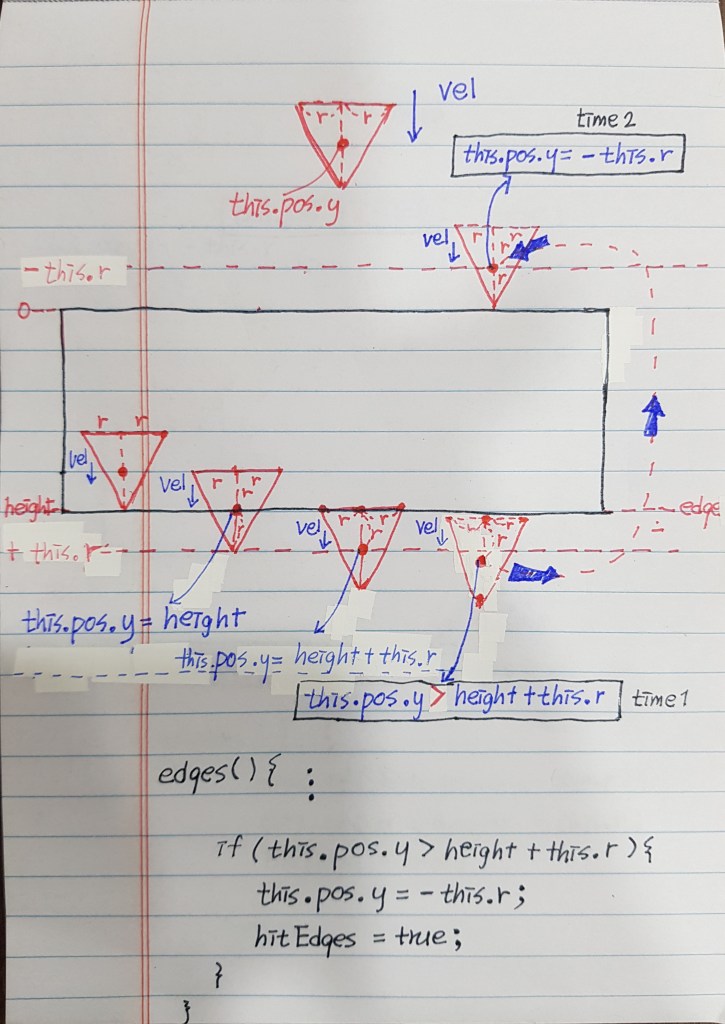 vel
r
time 2
this.pos.y = - this.r
this.pos.y
vel
r r
r
r
- this.r
0
r r
vel
vel
r r
r
r
vel
r r
r
vel
r
r
height
edge
+ this.r
this.pos.y = height
this.pos.y = height + this.r
this.pos.y > height + this.r
time 1
edges() { :
if (this.pos.y > height + this.r) {
this.pos.y = - this.r;
hitEdges = true;
}
}